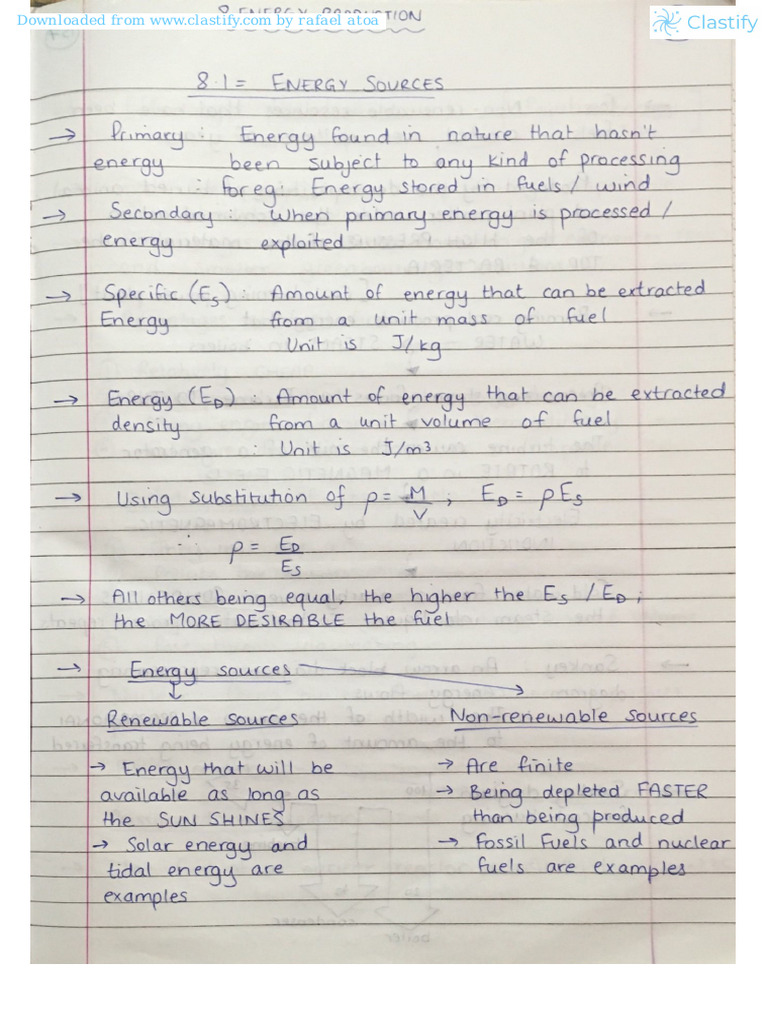 Downloaded from www.clastify.com by rafael atoa
Clastify
8 ENERGY PRODUCTION
8.1 = ENERGY SOURCES
→ Primary : Energy found in nature that hasn't
energy been subject to any kind of processing
: For eg: Energy stored in fuels / wind
→ Secondary : When primary energy is processed /
energy exploited
→ Specific (Es) : Amount of energy that can be extracted
Energy from a unit mass of fuel
: Unit is J/kg
→ Energy (ED) : Amount of energy that can be extracted
density from a unit volume of fuel
: Unit is J/m³
→ Using substitution of ρ = M/V ; ED = ρEs
∴ ρ = ED/Es
→ All others being equal, the higher the Es / ED ;
the MORE DESIRABLE the fuel
→ Energy sources
Renewable sources
→ Energy that will be
available as long as
the SUN SHINES
→ Solar energy and
tidal energy are
examples
Non-renewable sources
→ Are finite
→ Being depleted FASTER
than being produced
→ Fossil Fuels and nuclear
fuels are examples